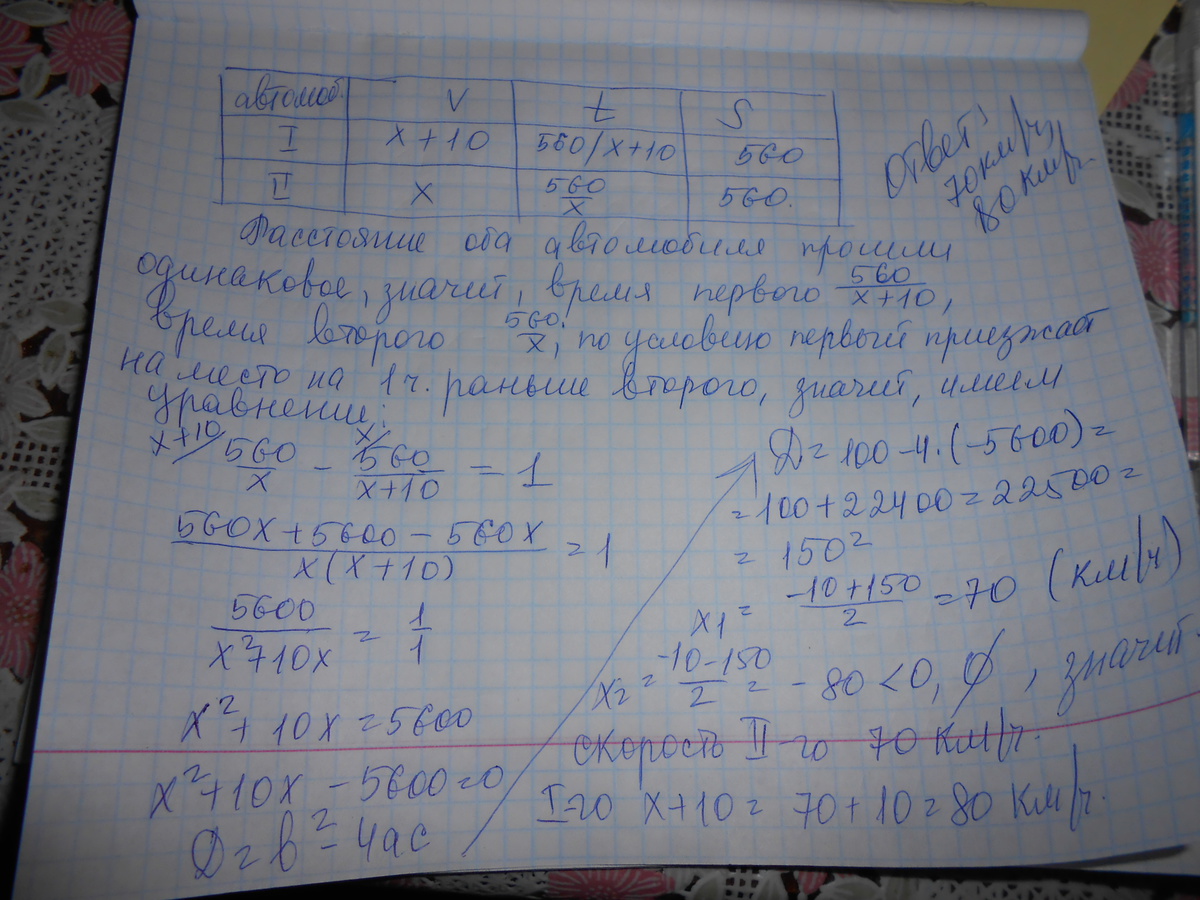 автомоб. V t S
I x+10 560/x+10 560
II x 560/x 560.
Ответ:
70 км/ч,
80 км/ч.
Расстояние оба автомобиля прошли
одинаковое, значит, время первого 560/x+10,
время второго 560/x, по условию первый приезжает
на место на 1 ч. раньше второго, значит, имеем
уравнение:
x+10/ 560/x - x/ 560/x+10 = 1
560x+5600-560x / x(x+10) = 1
5600 / x²+10x = 1/1
x²+10x=5600
x²+10x-5600=0
D=b²-4ac
D=100-4·(-5600)=
=100+22400=22500=
=150²
x1= -10+150 / 2 =70 (км/ч)
x2= -10-150 / 2 = -80<0, ∅, значит
скорость II-го 70 км/ч.
I-го x+10= 70+10=80 км/ч.